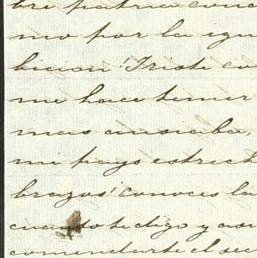 bre patria conc
mo por la igu
bicion! Triste cu
me hace temer
mas ansiaba,
mi pays estrech
brazos! Conoces la
cuanto te digo y asi
comendarte el sec